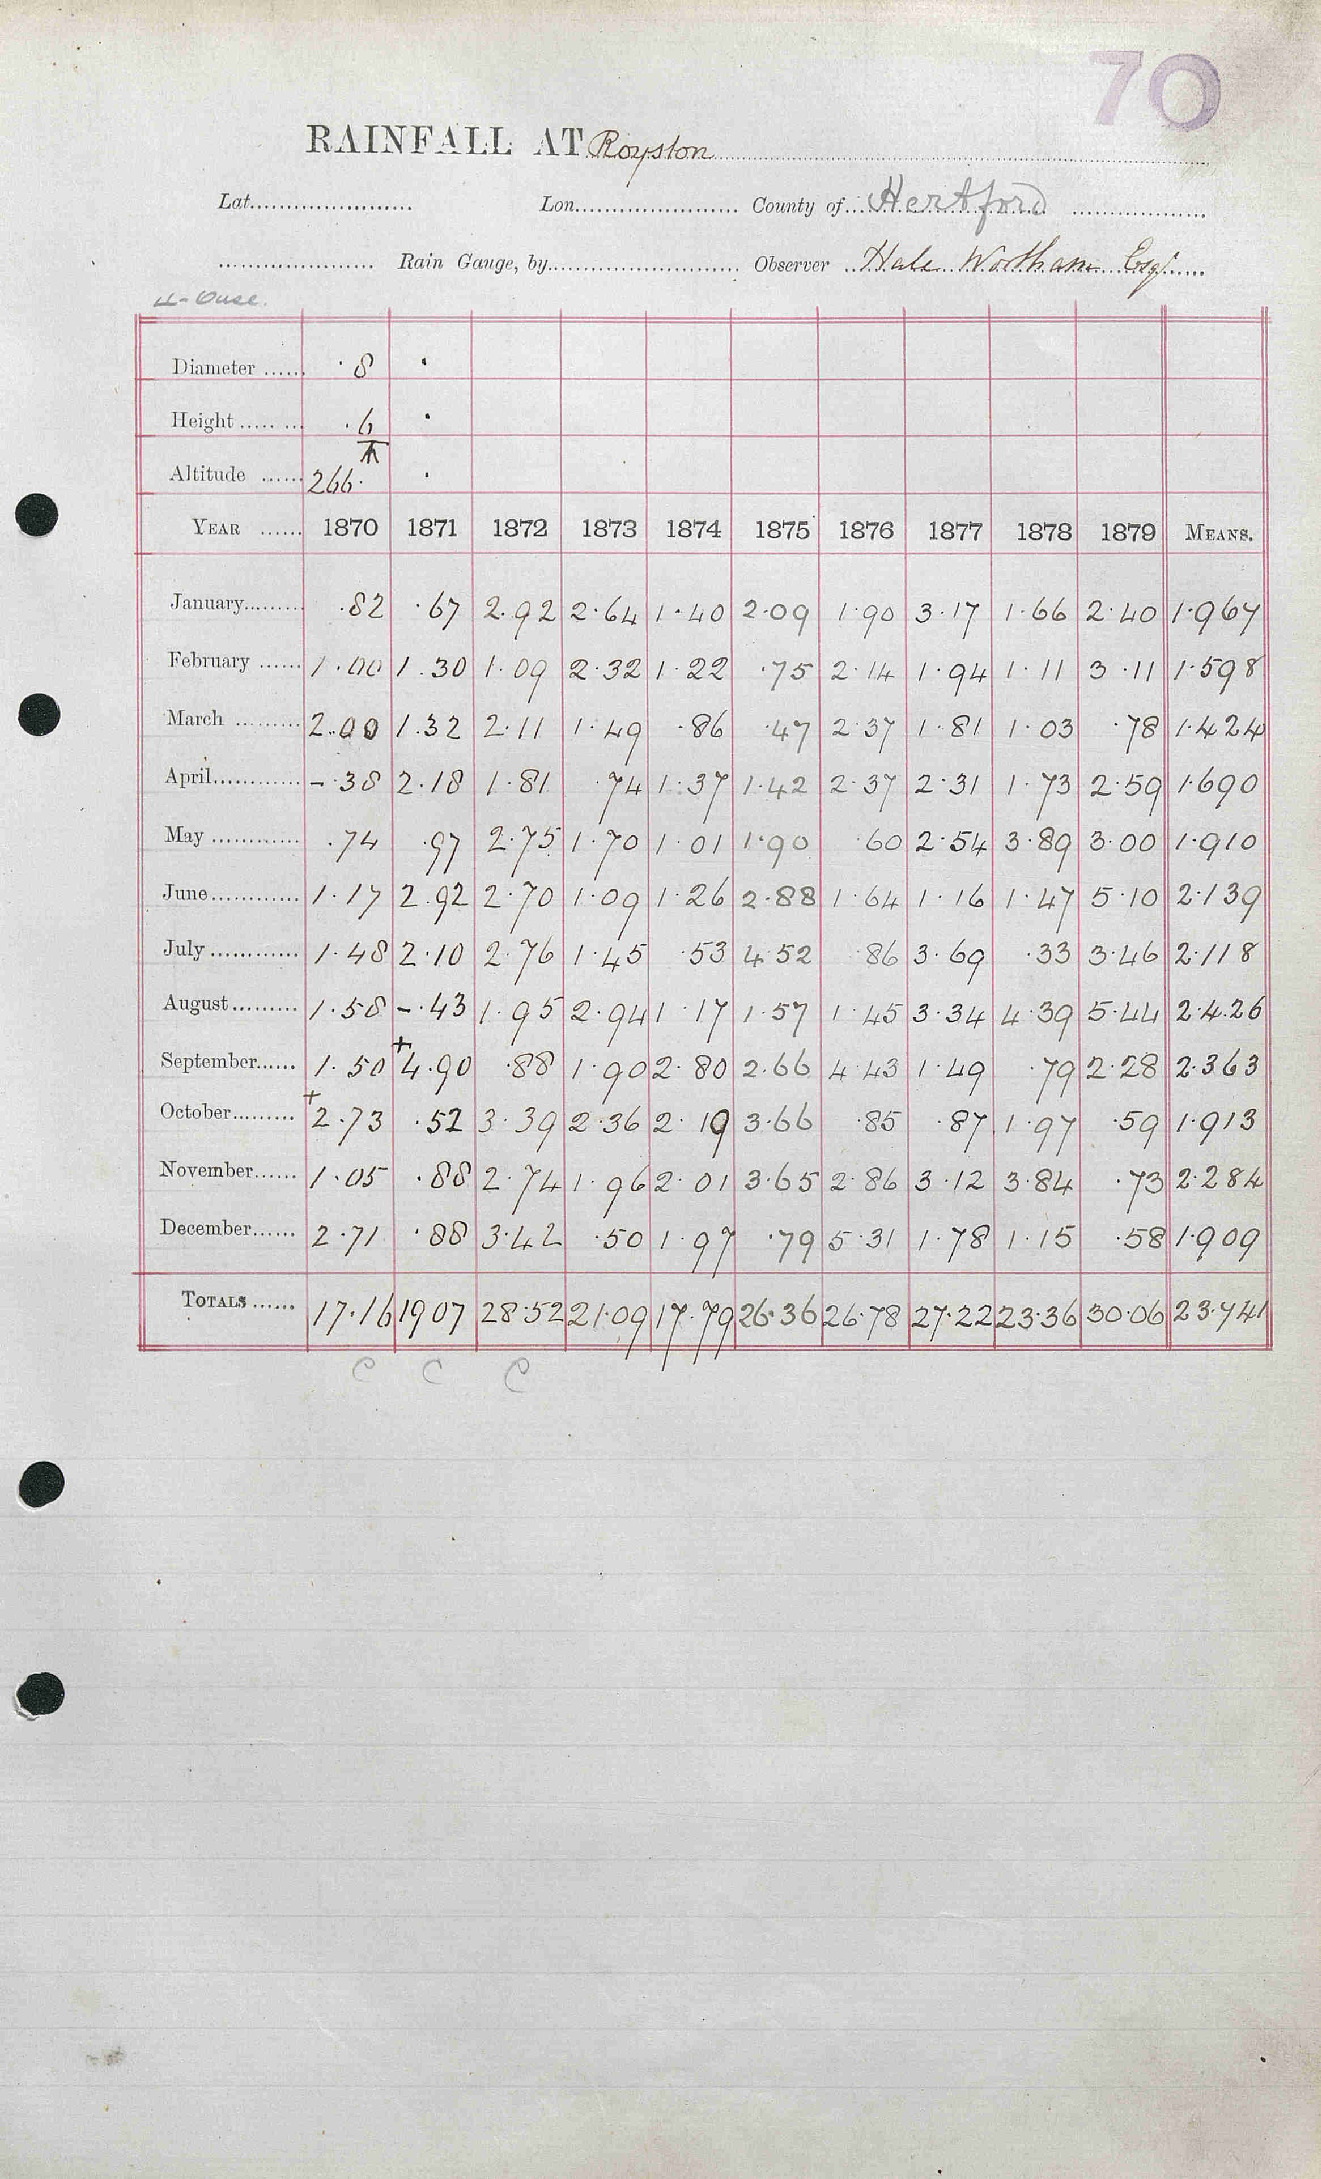 70
RAINFALL AT Royston
Lat. Lon. County of Hertford
Rain Gauge, by Observer Hale Wortham Esqr
4-Ouse.
Diameter ...... 8 ·
Height ........ .6 ·
Altitude ...... 266 ·
YEAR ...... 1870 1871 1872 1873 1874 1875 1876 1877 1878 1879 MEANS.
January ·82 ·67 2.92 2·64 1·40 2·09 1·90 3·17 1·66 2·40 1·967
February 1·00 1.30 1·09 2·32 1·22 ·75 2·14 1·94 1·11 3·11 1·598
March 2.00 1.32 2·11 1·49 ·86 ·47 2·37 1·81 1·03 ·78 1·424
April -·38 2·18 1·81 ·74 1·37 1·42 2·37 2·31 1·73 2·59 1·690
May ·74 ·97 2·75 1·70 1·01 1·90 ·60 2·54 3·89 3·00 1·910
June 1·17 2.92 2·70 1·09 1·26 2·88 1·64 1·16 1·47 5·10 2·139
July 1·48 2·10 2·76 1·45 ·53 4·52 ·86 3·69 ·33 3·46 2·118
August 1·58 -·43 1·95 2·94 1·17 1·57 1·45 3·34 4·39 5·44 2·426
September 1·50 +4.90 ·88 1·90 2·80 2·66 4·43 1·49 ·79 2·28 2·363
October +2·73 ·52 3·39 2·36 2·19 3·66 ·85 ·87 1·97 ·59 1·913
November 1·05 ·88 2·74 1·96 2·01 3·65 2·86 3·12 3·84 ·73 2·284
December 2·71 ·88 3·42 ·50 1·97 ·79 5·31 1·78 1·15 ·58 1·909
TOTALS 17·16 19 07 28·52 21·09 17·79 26·36 26·78 27·22 23·36 30·06 23·741
C C C